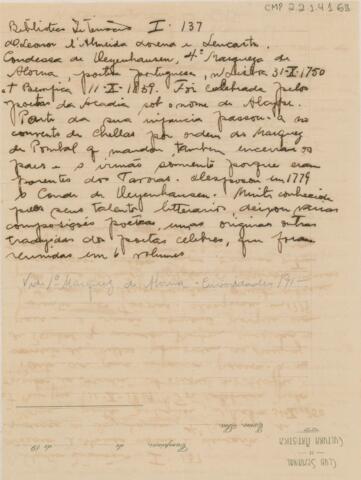 CMP 2.2.1.4.1 68
Bibliotheca I. 137
D. Leonor d'Almeida Lorena e Lencastre
Condessa de Oeyenhausen, 4ª Marqueza de
Alorna, poetisa portugueza, n. Lisboa 31-X-1750
+ Bemfica 11-X-1839. Foi celebrada pelos
poetas da Arcadia sob o nome de Alcippe.
Parte da sua infancia passou-a no
convento de Chellas por ordem do Marquez
de Pombal q mandou tambem encerrar os
paes e os irmãos somente porque eram
parentes dos Tavoras. desposou em 1779
o Conde de Oeyenhausen. Muito conhecida
pelos seus talentos litterarios, deixou varias
composições poeticas, umas originas outras
traduções dos poetas celebres, que foram
reunidas em 6 volumes
Vide 1º Marquez de Alorna - Curiosidades 191-
Campinas, de de 19
CLUB SEMANAL
DE
CULTURA ARTISTICA